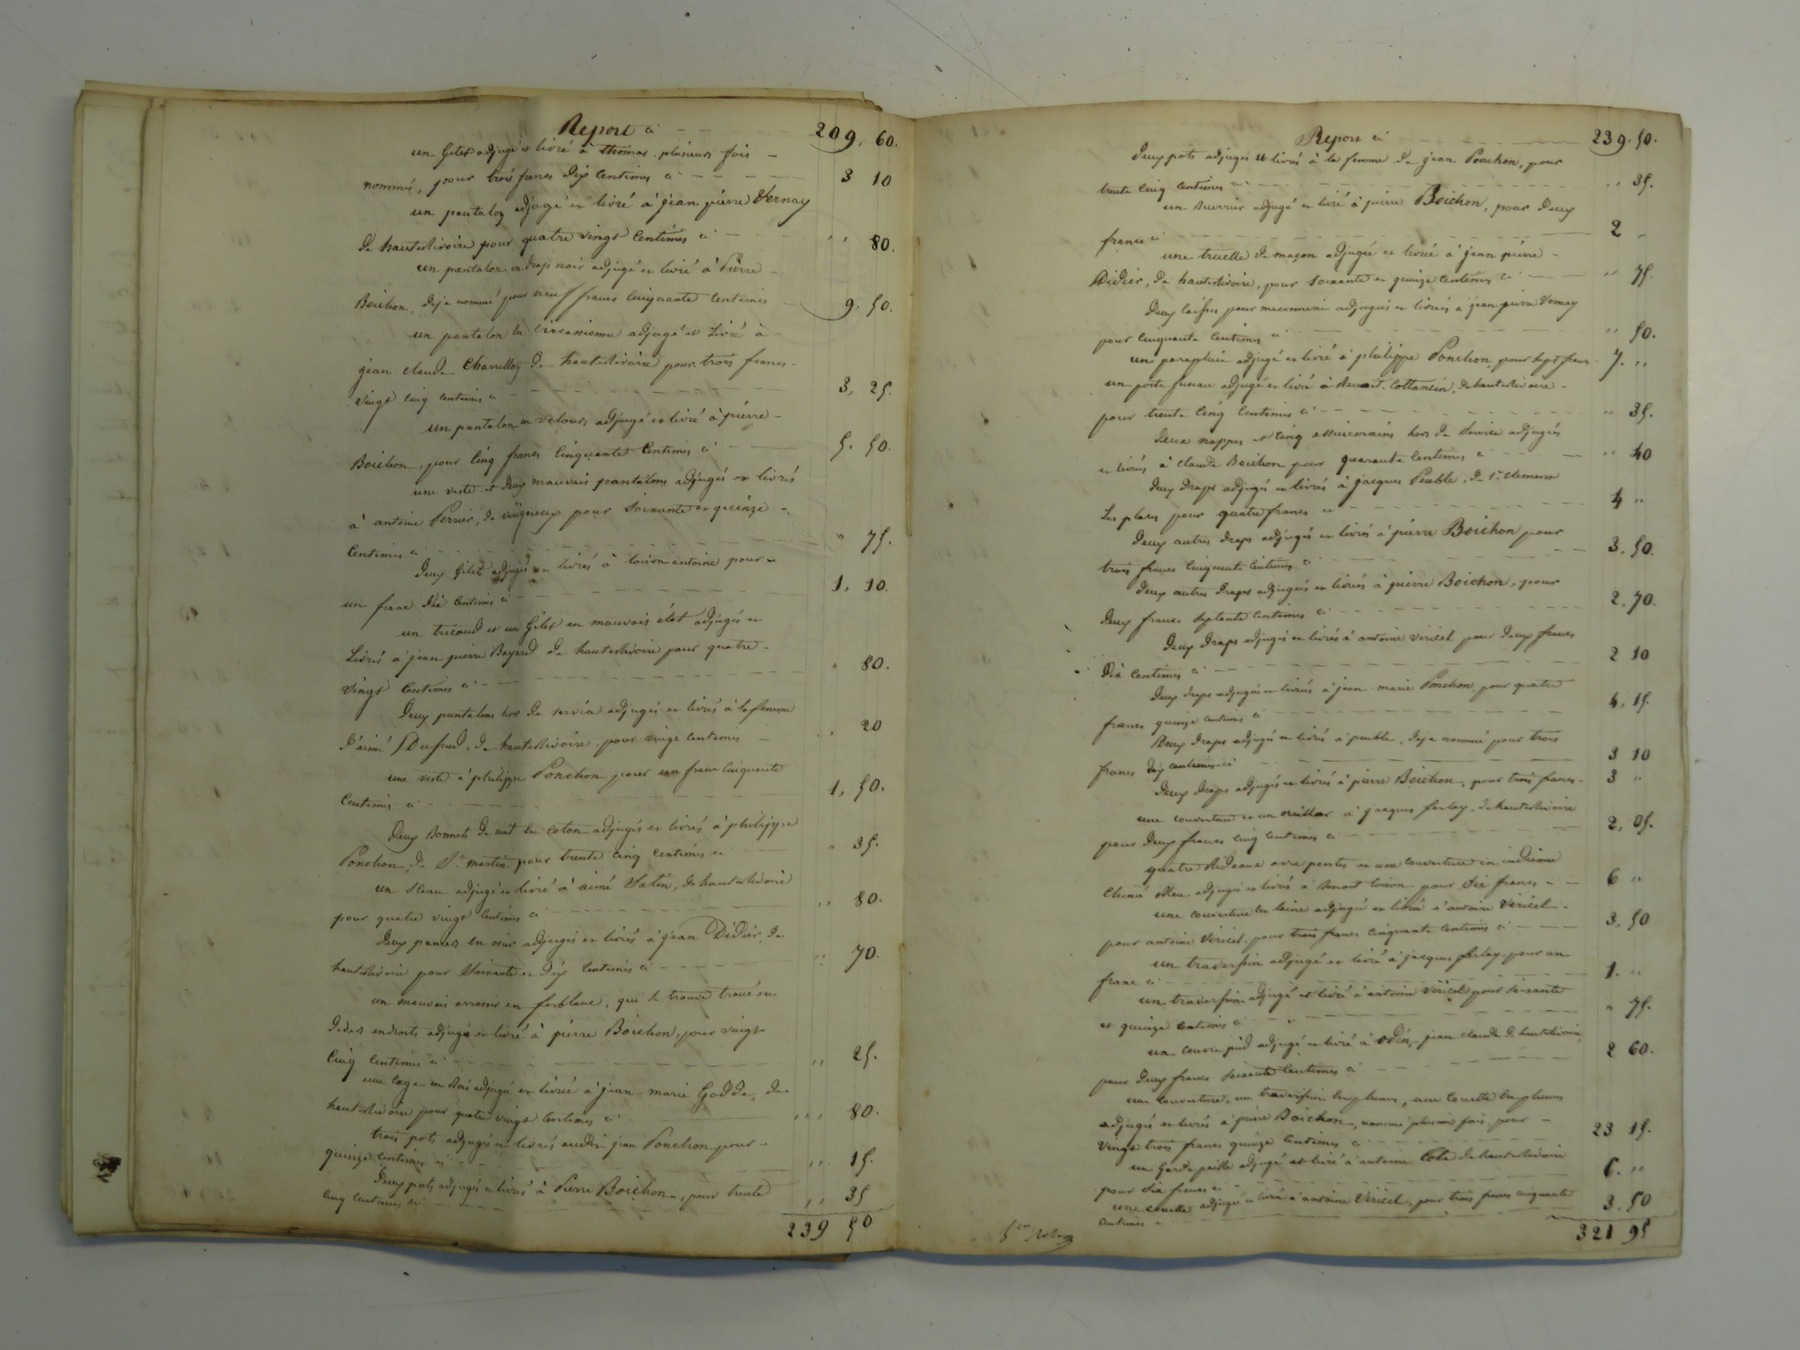 Report ci 209, 60.
un Gilet adjugé et livré à thomas, plusieurs fois
nommé, pour trois francs dix centimes ci 3 10
un pantalon adjugé et livré à jean pierre Vernay
de hauterivoire pour quatre vingt centimes ci ,, 80.
un pantalon en drap noir adjugé et livré à Pierre
Boichon, déja nommé pour neuf francs cinquante centimes 9, 50.
un pantalon en circassienne adjugé et livré à
jean claude de hauterivoire pour trois francs
vingt cinq centimes ci 3, 25.
un pantalon en velours adjugé et livré à pierre
Boichon, pour cinq francs cinquante centimes ci 5. 50.
une veste et deux mauvais pantalons adjugés et livrés
à antoine Perrier, de pour soixante et quinze
centimes ci ,, 75.
deux gilets adjugés et livrés à antoine pour
un franc dix centimes ci 1, 10.
un tricaud et un gilet en mauvais état adjugés et
Livrés à jean pierre Bayard de hauterivoire pour quatre
vingt centimes ci ,, 80.
deux pantalons hors de service adjugés et livrés à la femme
d'aimé de hauterivoire, pour vingt centimes ,, 20
une veste à philippe Ponchon pour un franc cinquante
centimes ci 1, 50.
deux Bonnets de nuit en coton adjugés et livrés à philippe
Ponchon, de St martin pour trente cinq centimes ci ,, 35.
un adjugé et livré à aimé de hauterivoire
pour quatre vingt centimes ci ,, 80.
deux paniers en osier adjugés et livrés à jean Didier, de
hauterivoire pour soixante et dix centimes ci ,, 70.
un mauvais arrosoir en ferblanc, qui se trouve troué en
divers endroits adjugé et livré à pierre Boichon, pour vingt
cinq centimes ci ,, 25.
une cage en adjugée et livrée à jean marie Godde, de
hauterivoire pour quatre vingt centimes ci ,, 80.
trois pots adjugés et livrés jean Ponchon pour
quinze centimes ci ,, 15.
deux pots adjugés et livrés à Pierre Boichon, pour trente
cinq centimes ci ,, 35
239 50
Report ci 239. 50.
deux pots adjugés et livrés à la femme de jean Ponchon, pour
trente cinq centimes ci ,, 35.
un adjugé et livré à pierre Boichon, pour deux
francs ci 2 ,,
une truelle de maçon adjugée et livrée à jean pierre
Didier, de hauterivoire, pour soixante et quinze centimes ci ,, 75.
deux pour maconnerie adjugées et livrées à jean pierre Vernay
pour cinquante centimes ci ,, 50.
un parapluie adjugé et livré à philippe Ponchon, pour sept francs 7. ,,
un porte fuseau adjugé et livré à Benoit Cottancin, de hauterivoire
pour trente cinq centimes ci ,, 35.
deux nappes et cinq essuiemains hors de service adjugés
et livrés à claude Boichon pour quarante centimes ci ,, 40
deux draps adjugés et livrés à jacques Peuble, de St clement
les places pour quatre francs ci 4 ,,
deux autres draps adjugés et livrés à pierre Boichon pour
trois francs cinquante centimes ci 3. 50.
deux autres draps adjugés et livrés à pierre Boichon, pour
deux francs septante centimes ci 2. 70.
deux draps adjugés et livrés à antoine Vericel pour deux francs
dix centimes ci 2 10
deux draps adjugés et livrés à jean marie Ponchon, pour quatre
francs quinze centimes ci 4, 15.
deux draps adjugés et livrés à peuble, déja nommé pour trois
francs dix centimes ci 3 10
deux draps adjugés et livrés à pierre Boichon, pour trois francs 3 ,,
une couverture et un à jacques ferlay, de hauterivoire
pour deux francs cinq centimes ci 2, 05.
quatre Rideaux avec pentes et une couverture en indienne
bleu adjugés et livrés à Benoit pour six francs ci 6 ,,
une couverture en laine adjugée et livrée à antoine Vericel
pour antoine Vericel pour trois francs cinquante centimes ci 3, 50
un traversin adjugé et livré à jacques ferlay, pour un
franc ci 1. ,,
un traversin adjugé et livré à antoine Vericel pour soixante
et quinze centimes ci ,, 75.
un couvre pied adjugé et livré à odin, jean claude de hauterivoire
pour deux francs soixante centimes ci 2 60.
une couverture, un traversin en plumes, une couette en plumes
adjugés et livrés à pierre Boichon, nommé plusieurs fois, pour
vingt trois francs quinze centimes ci 23 15.
un garde paille adjugé et livré à antoine Cote de hauterivoire
pour six francs ci 6. ,,
une couette adjugée et livrée à antoine Vericel, pour trois francs cinquante
centimes ci 3. 50
321 95